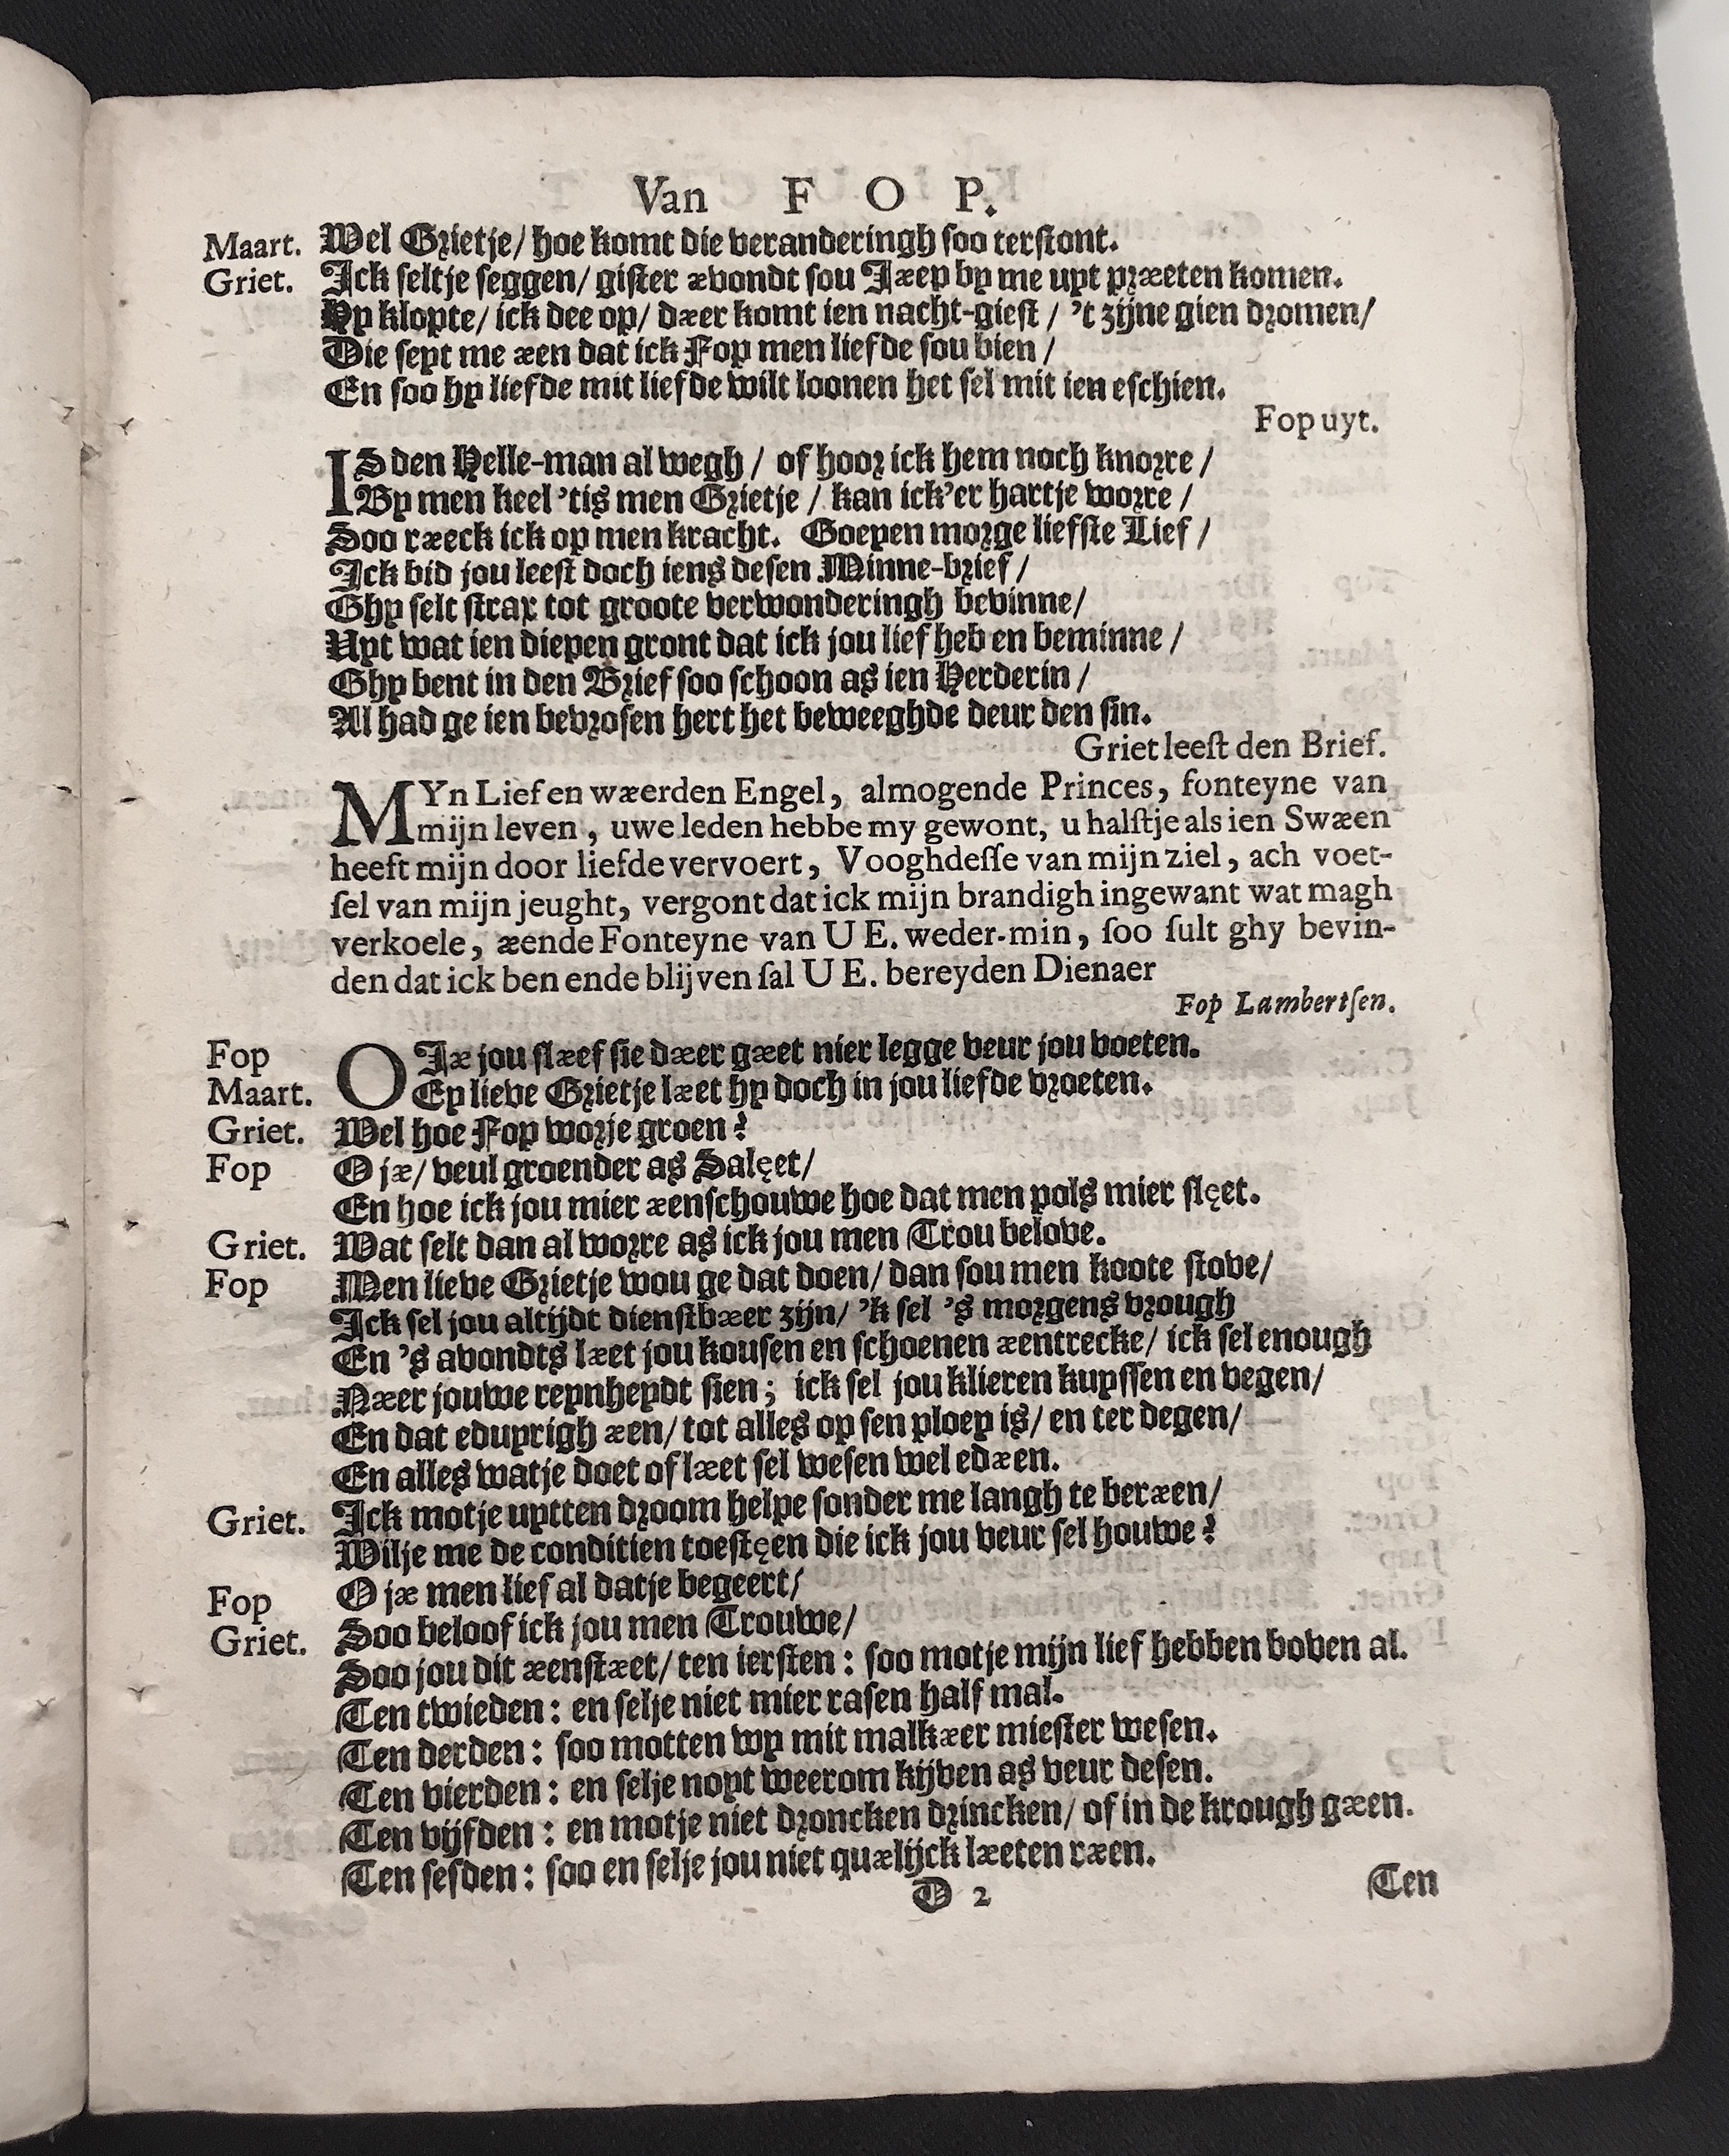 Van F O P.
Maart. Wel Grietje/ hoe komt die veranderingh soo terstont.
Griet. Ick seltje seggen/ gister ævondt sou Jæep by me uyt præeten komen.
Hy klopte/ ick dee op/ dæer komt ien nacht-giest / 't zijne gien dromen/
Die seyt me æen dat ick Fop men liefde sou bien /
En soo hy liefde mit liefde wilt loonen het sel mit ien eschien.
Fop uyt.
IS den Helle-man al wegh / of hoor ick hem noch knorre /
By men keel 'tis men Grietje / kan ick'er hartje worre /
Soo ræeck ick op men kracht. Goeyen morge liefste Lief /
Ick bid jou leest doch iens desen Minne-brief /
Ghy selt strax tot groote verwonderingh bevinne/
Uyt wat ien diepen gront dat ick jou lief heb en beminne /
Ghy bent in den Brief soo schoon as ien Herderin /
Al had ge ien bevrosen hert het beweeghde deur den sin.
Griet leest den Brief.
MYn Lief en wæerden Engel, almogende Princes, fonteyne van
mijn leven, uwe leden hebbe my gewont, u halstje als ien Swæen
heeft mijn door liefde vervoert, Vooghdesse van mijn ziel, ach voet-
sel van mijn jeught, vergont dat ick mijn brandigh ingewant wat magh
verkoele, æende Fonteyne van U E. weder-min, soo sult ghy bevin-
den dat ick ben ende blijven sal U E. bereyden Dienaer
Fop Lambertsen.
Fop O Jæ jou slæef sie dæer gæet nier legge veur jou voeten.
Maart. Ey lieve Grietje læet hy doch in jou liefde vroeten.
Griet. Wel hoe Fop worje groen?
Fop O jæ/ veul groender as Salęet/
En hoe ick jou mier æenschouwe hoe dat men pols mier slęet.
Griet. Wat selt dan al worre as ick jou men Trou belove.
Fop Men lieve Grietje wou ge dat doen/ dan sou men koote stove/
Ick sel jou altijdt dienstbæer zijn/ 'k sel 's morgens vrough
En 's avondts læet jou kousen en schoenen æentrecke/ ick sel enough
Næer jouwe reynheydt sien; ick sel jou klieren kuyssen en vegen/
En dat eduyrigh æen/ tot alles op sen ploey is/ en ter degen/
En alles watje doet of læet sel wesen wel edæen.
Griet. Ick motje uytten droom helpe sonder me langh te beræen/
Wilje me de conditien toestęen die ick jou veur sel houwe?
Fop O jæ men lief al datje begeert/
Griet. Soo beloof ick jou men Trouwe/
Soo jou dit æenstæet/ ten iersten: soo motje mijn lief hebben boven al.
Ten twieden: en selje niet mier rasen half mal.
Ten derden: soo motten wy mit malkæer miester wesen.
Ten vierden: en selje noyt weerom kijven as veur desen.
Ten vijfden: en motje niet droncken drincken/ of in de krough gæen.
Ten sesden: soo en selje jou niet quælijck læeten ræen.
D 2 Ten